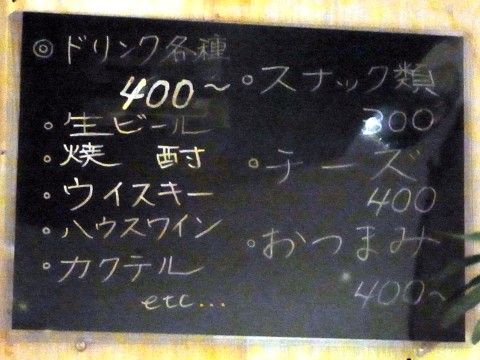 ◎ドリンク各種
400〜
・生ビール
・焼酎
・ウイスキー
・ハウスワイン
・カクテル
etc...
・スナック類
300
・チーズ
400
・おつまみ
400〜